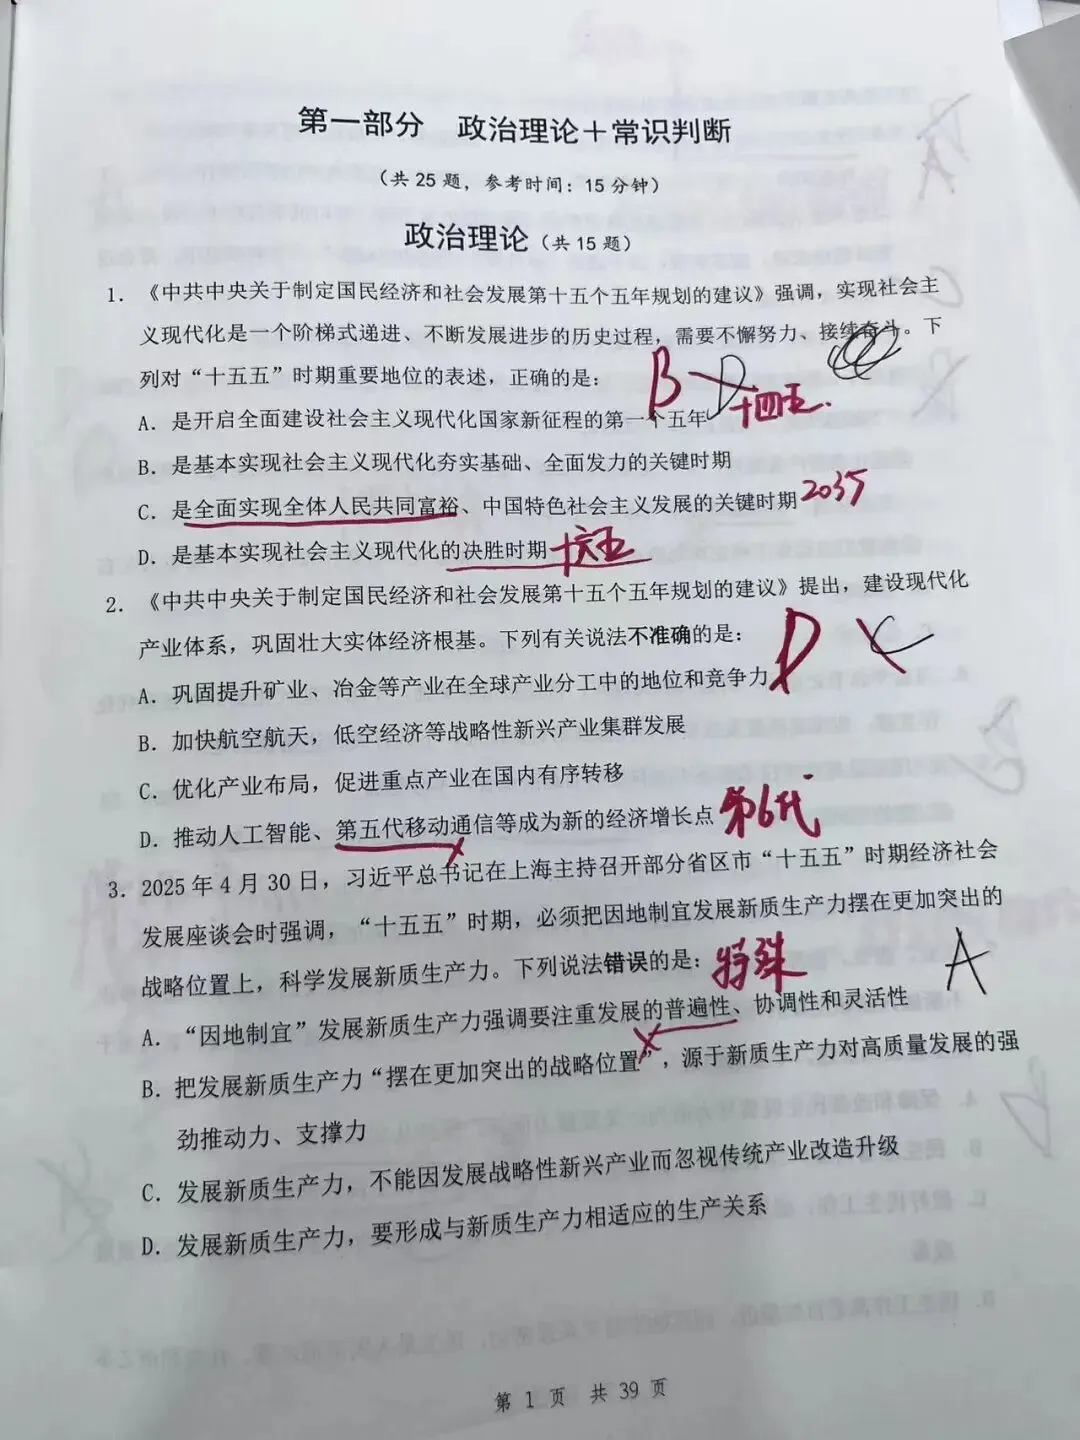 第一部分　政治理论＋常识判断
（共 25 题，参考时间：15 分钟）
政治理论（共 15 题）
1. 《中共中央关于制定国民经济和社会发展第十五个五年规划的建议》强调，实现社会主
义现代化是一个阶梯式递进、不断发展进步的历史过程，需要不懈努力、接续奋斗。下
列对“十五五”时期重要地位的表述，正确的是：
B D
A. 是开启全面建设社会主义现代化国家新征程的第一个五年 十四五.
B. 是基本实现社会主义现代化夯实基础、全面发力的关键时期
C. 是全面实现全体人民共同富裕、中国特色社会主义发展的关键时期 2035
D. 是基本实现社会主义现代化的决胜时期 十六五
2. 《中共中央关于制定国民经济和社会发展第十五个五年规划的建议》提出，建设现代化
产业体系，巩固壮大实体经济根基。下列有关说法不准确的是： D C
A. 巩固提升矿业、冶金等产业在全球产业分工中的地位和竞争力
B. 加快航空航天，低空经济等战略性新兴产业集群发展
C. 优化产业布局，促进重点产业在国内有序转移
D. 推动人工智能、第五代移动通信等成为新的经济增长点 第6代
3. 2025 年 4 月 30 日，习近平总书记在上海主持召开部分省区市“十五五”时期经济社会
发展座谈会时强调，“十五五”时期，必须把因地制宜发展新质生产力摆在更加突出的
战略位置上，科学发展新质生产力。下列说法错误的是： 特殊 A
A. “因地制宜”发展新质生产力强调要注重发展的普遍性、协调性和灵活性
B. 把发展新质生产力“摆在更加突出的战略位置”，源于新质生产力对高质量发展的强
劲推动力、支撑力
C. 发展新质生产力，不能因发展战略性新兴产业而忽视传统产业改造升级
D. 发展新质生产力，要形成与新质生产力相适应的生产关系
第 1 页　共 39 页